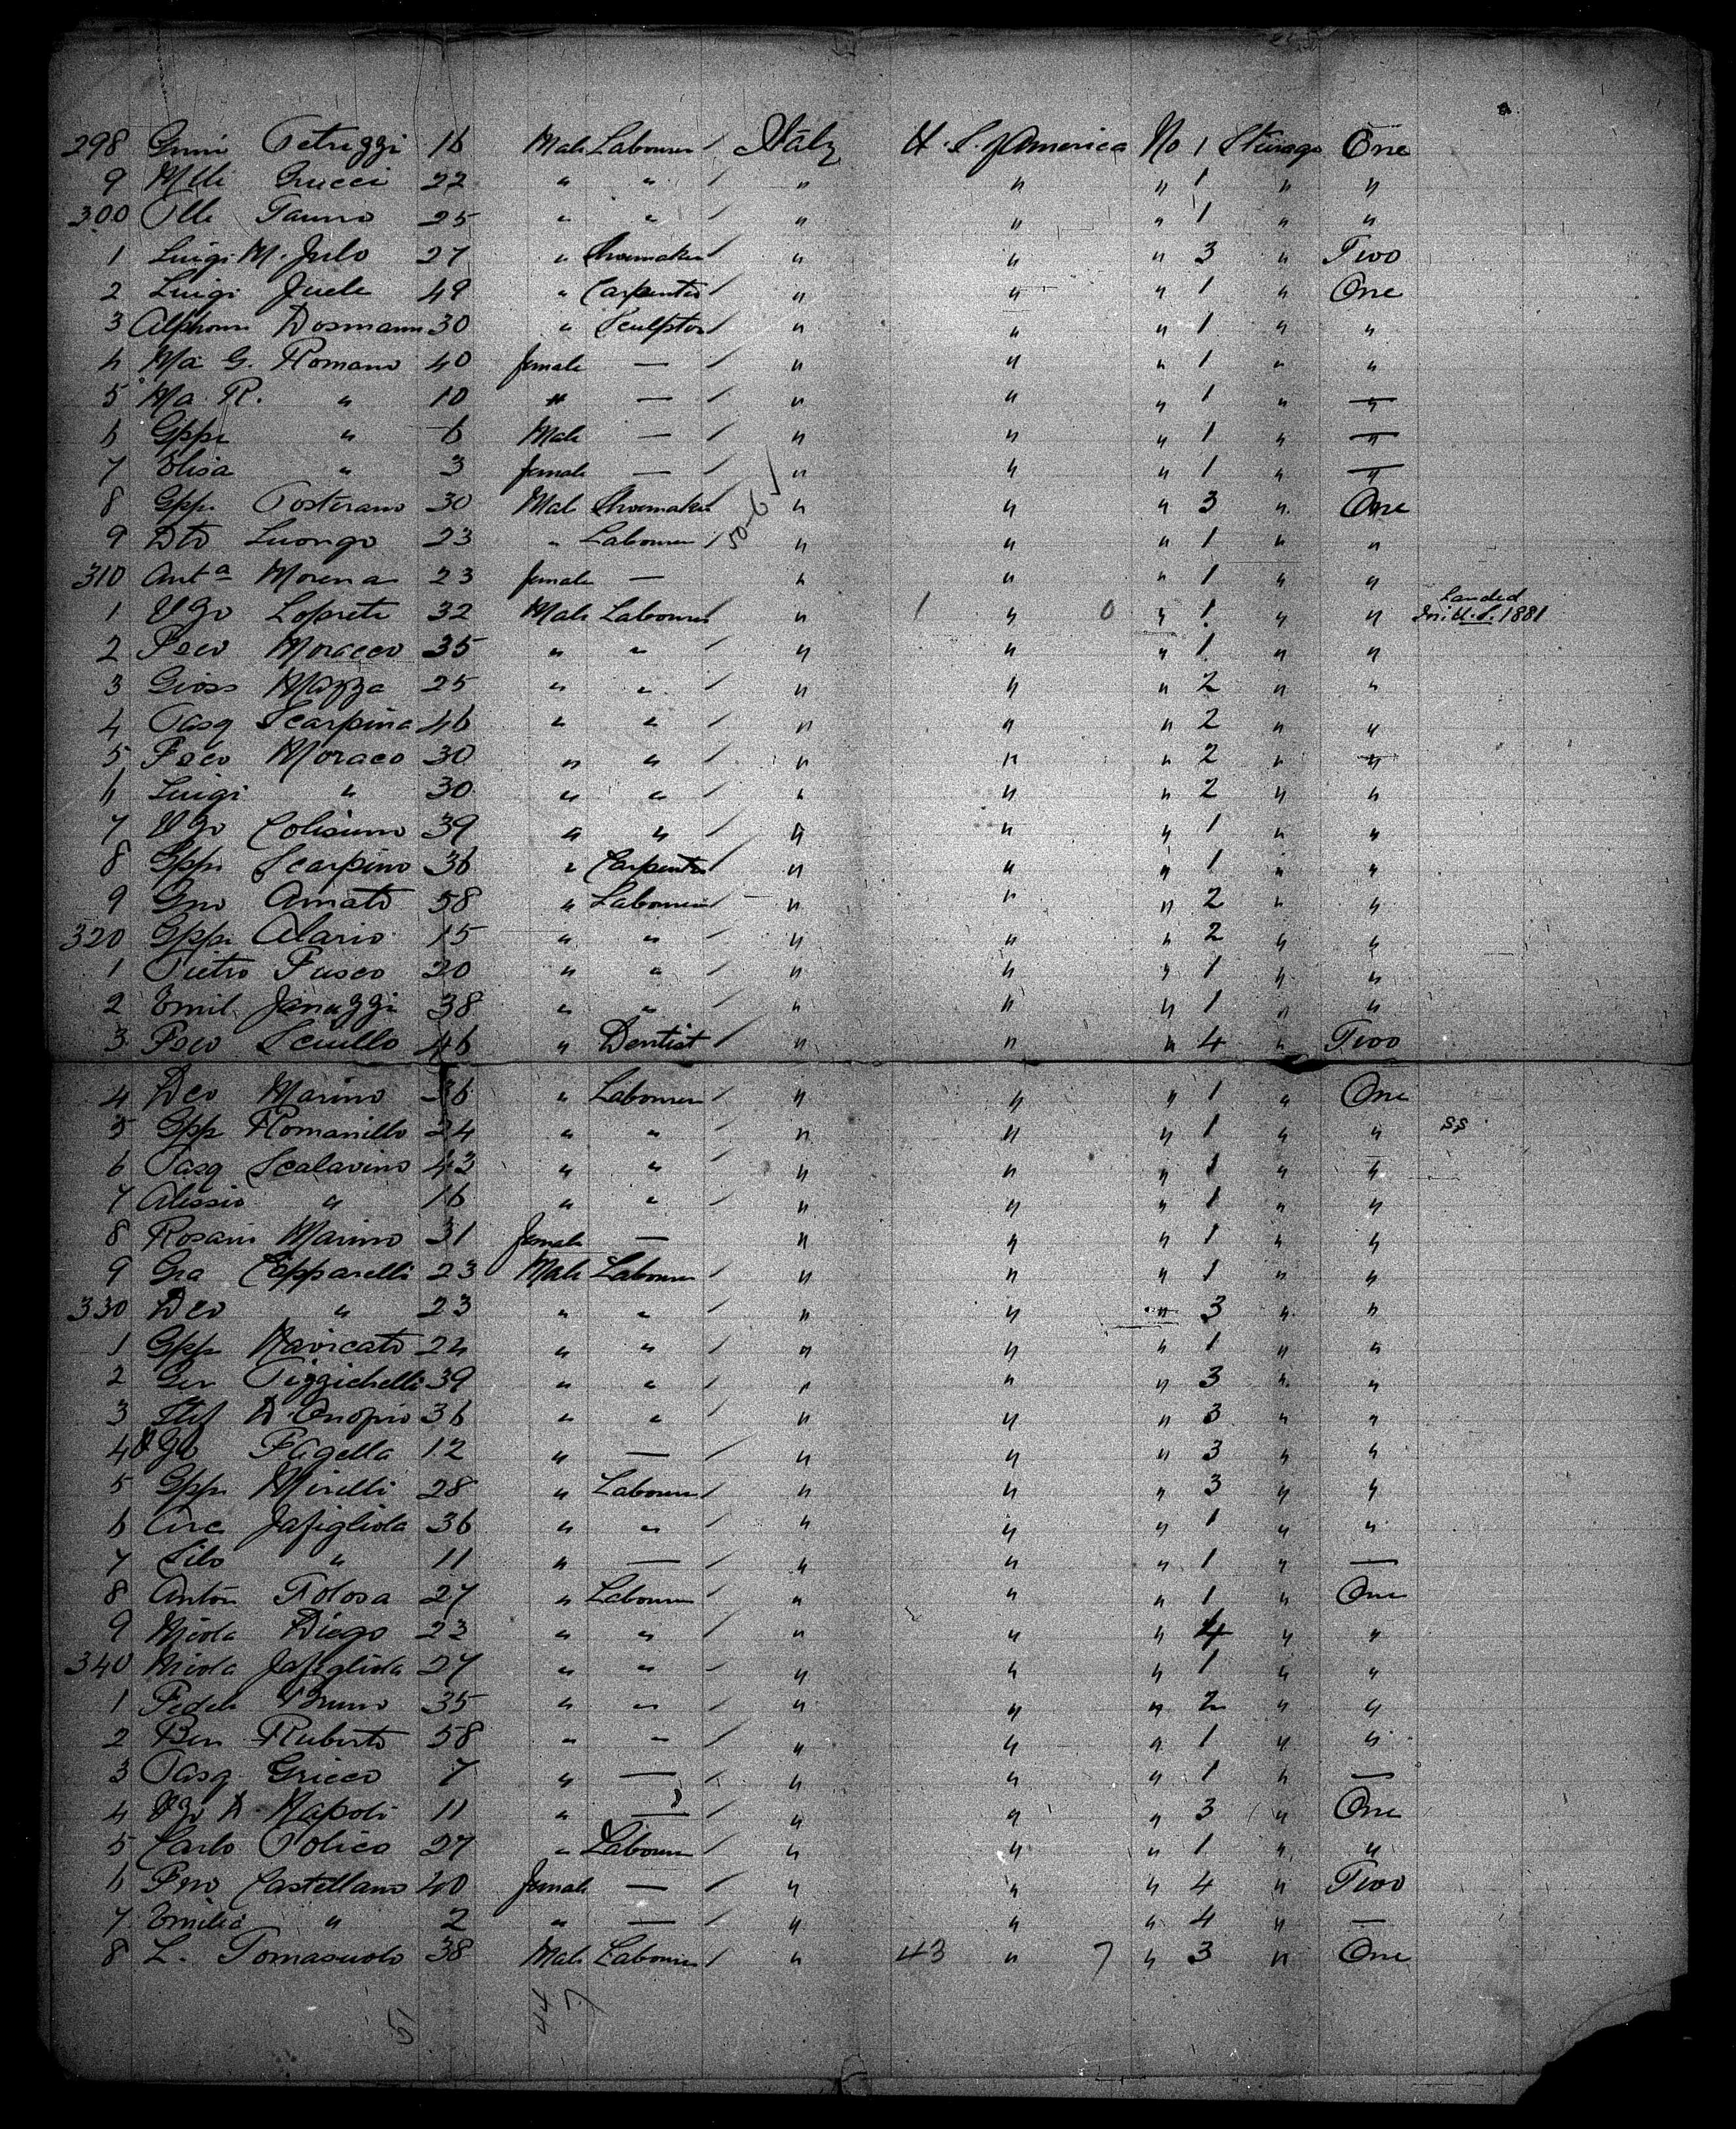 298 Petruzzi 16 Male Labourer / Italy U. S. of America No 1 Steerage One
9 Grucci 22 " " / " " " 1 " "
300 25 " " / " " " 1 " "
1 Luigi M. Julo 27 " Shoemaker / " " " 3 " Two
2 Luigi Juele 49 " Carpenter / " " " 1 " One
3 30 " Sculptor / " " " 1 " "
4 Ma G. Romano 40 female — / " " " 1 " "
5 Ma R. " 10 " — / " " " 1 " —
6 Gppe " 6 Male — / " " " 1 " —
7 Elisa " 3 female — / " " " 1 " —
8 Gppe Posterano 30 Male Shoemaker " " " 3 " One
9 Dto Luongo 23 " Labourer / " " " 1 " "
310 Anta Morena 23 female — " " " 1 " "
1 Vzo Loprete 32 Male Labourer " 1 " 0 " 1 " " Landed In U.S. 1881
2 Fsco Moracco 35 " " / " " " 1 " "
3 Mazza 25 " " / " " " 2 " "
4 Pasq Scarpina 46 " " / " " " 2 " "
5 Fsco Moraco 30 " " / " " " 2 " "
6 Luigi " 30 " " / " " " 2 " "
7 Vzo 39 " " / " " " 1 " "
8 Gppe Scarpino 36 " Carpenter / " " " 1 " "
9 Gno Amato 58 " Labourer / " " " 2 " "
320 Gppe Alario 15 " " / " " " 2 " "
1 Pietro Fusco 20 " " / " " " 1 " "
2 Emil Januzzi 38 " " / " " " 1 " "
3 Fsco Scuillo 46 " Dentist / " " " 4 " Two
4 Dco Marino 36 " Labourer / " " " 1 " One
5 Gppe Romanillo 24 " " / " " " 1 " " SS
6 Pasq Scalavino 43 " " / " " " 1 " "
7 Alessio " 16 " " / " " " 1 " "
8 Marino 31 female — " " " 1 " "
9 Gra Capparelli 23 Male Labourer / " " " 1 " "
330 Dco " 23 " " / " " " 3 " "
1 Gppe Navicato 24 " " / " " " 1 " "
2 Ger Pizzichelli 39 " " / " " " 3 " "
3 Stef D'Onopio 36 " " / " " " 3 " "
4 Vzo Fagella 12 " — / " " " 3 " "
5 Gppe Mirelli 28 " Labourer / " " " 3 " "
6 Jafigliola 36 " " / " " " 1 " "
7 " 11 " — / " " " 1 " —
8 Anton Tolosa 27 " Labourer / " " " 1 " One
9 Nicola Diego 23 " " / " " " 4 " "
340 Nicola Jafigliola 27 " " / " " " 1 " "
1 Fedele Bruno 35 " " / " " " 2 " "
2 Ben Ruberto 58 " " / " " " 1 " "
3 Pasq Grieco 7 " — / " " " 1 " —
4 Vzo D. Napoli 11 " — / " " " 3 " One
5 Carlo Polico 27 " Labourer / " " " 1 " "
6 Castellano 40 female — / " " " 4 " Two
7 Emilia " 2 " — / " " " 4 " —
8 L. Tomasuolo 38 Male Labourer / " 43 " 7 " 3 " One
51 44 7